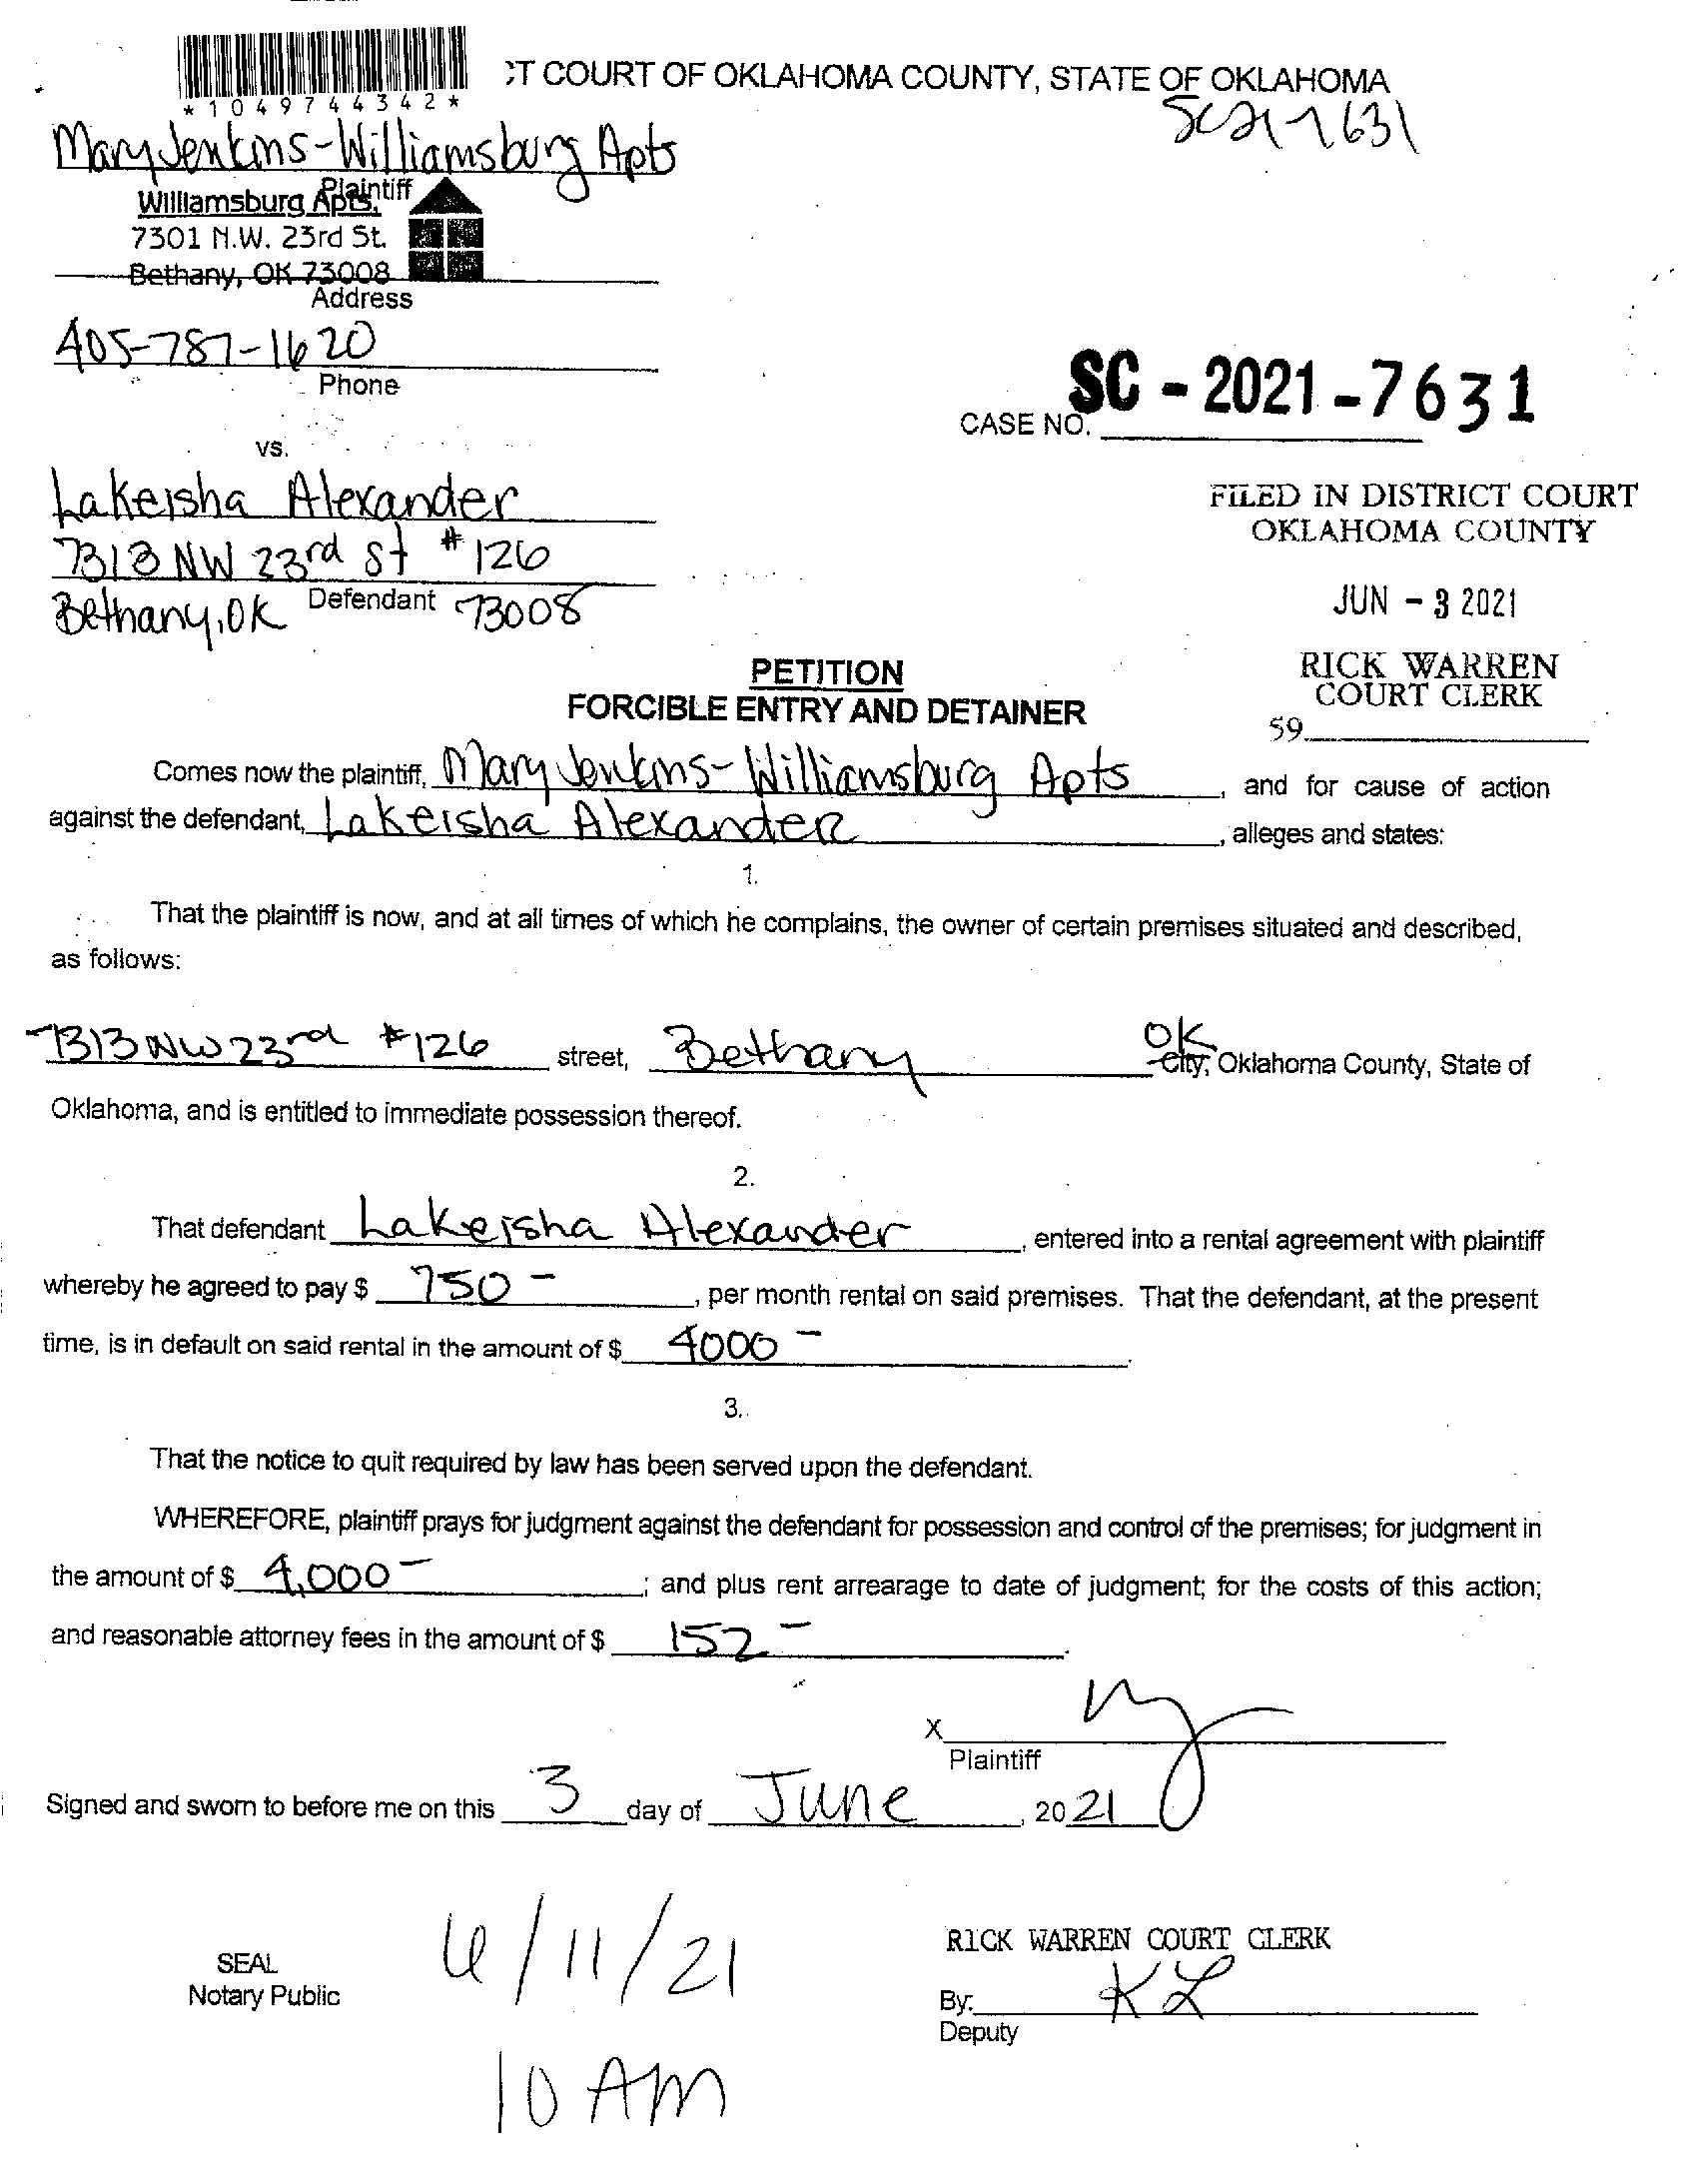 T COURT OF OKLAHOMA COUNTY, STATE OF OKLAHOMA
*1049744342*
SC21-7631
Mary Jenkins-Williamsburg Apts
Plaintiff
Williamsburg Apts.
7301 N.W. 23rd St.
Bethany, OK 73008
Address
405-787-1620
Phone
SC - 2021 - 7631
CASE NO.
vs.
Lakeisha Alexander
7313 NW 23rd St #126
Defendant
Bethany, OK 73008
FILED IN DISTRICT COURT
OKLAHOMA COUNTY
JUN - 3 2021
RICK WARREN
COURT CLERK
59
PETITION
FORCIBLE ENTRY AND DETAINER
Comes now the plaintiff, Mary Jenkins-Williamsburg Apts, and for cause of action
against the defendant, Lakeisha Alexander, alleges and states:
1.
That the plaintiff is now, and at all times of which he complains, the owner of certain premises situated and described,
as follows:
7313 NW 23rd #126 street, Bethany OK City, Oklahoma County, State of
Oklahoma, and is entitled to immediate possession thereof.
2.
That defendant Lakeisha Alexander, entered into a rental agreement with plaintiff
whereby he agreed to pay $ 750 -, per month rental on said premises. That the defendant, at the present
time, is in default on said rental in the amount of $ 4000 -.
3.
That the notice to quit required by law has been served upon the defendant.
WHEREFORE, plaintiff prays for judgment against the defendant for possession and control of the premises; for judgment in
the amount of $ 4,000 -; and plus rent arrearage to date of judgment; for the costs of this action;
and reasonable attorney fees in the amount of $ 152 -.
X
Plaintiff
Signed and sworn to before me on this 3 day of June, 2021
SEAL
Notary Public
6/11/21
10 AM
RICK WARREN COURT CLERK
By: KL
Deputy